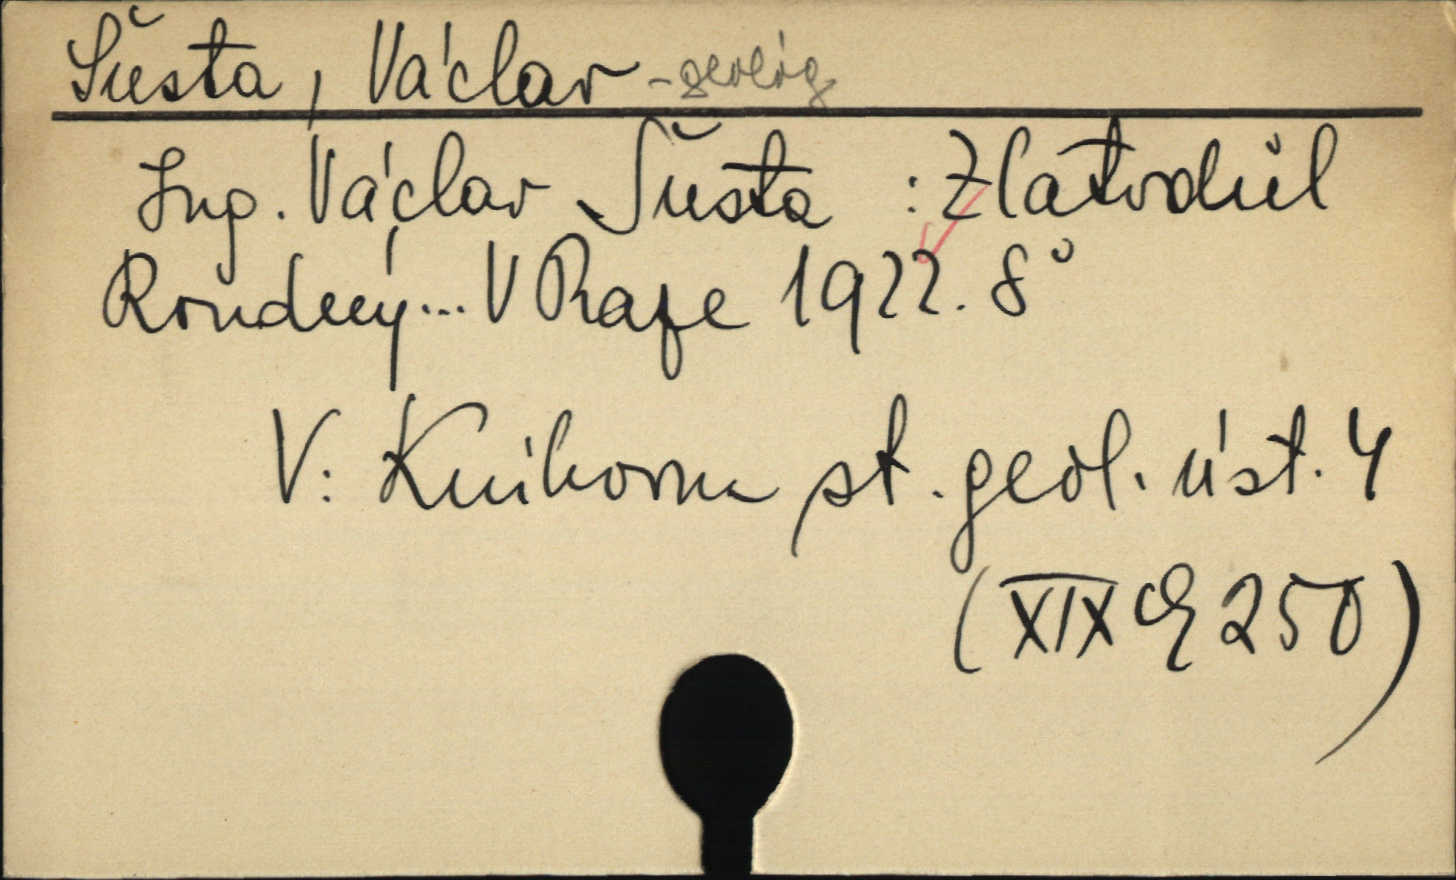 Šusta, Václav - geolog
Ing. Václav Šusta : Zlatodůl
Roudný... V Praze 1922. 8°
V: Knihovna st. geol. úst. 4
(XIX 250)